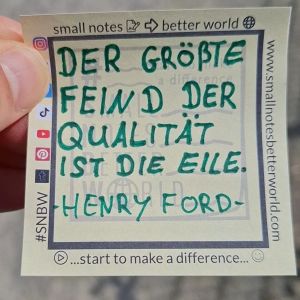 small notes better world
DER GRÖẞTE
FEIND DER
QUALITÄT
IST DIE EILE.
-HENRY FORD-
#SNBW
www.smallnotesbetterworld.com
...start to make a difference...